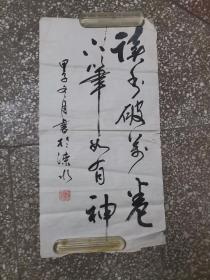 读书破万卷
下笔如有神
甲子冬月书于溧水